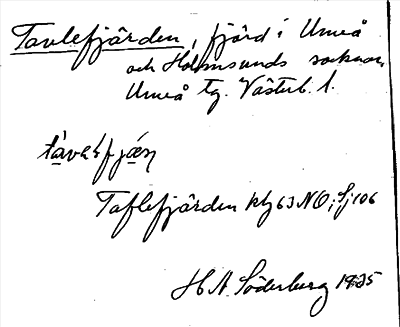 Tavlefjärden, fjärd i Umeå
och Holmsunds socknar,
Umeå tg. Västerb. l.
Taflefjärden ktg 63 NO; Sj 106
H A Söderberg 1935